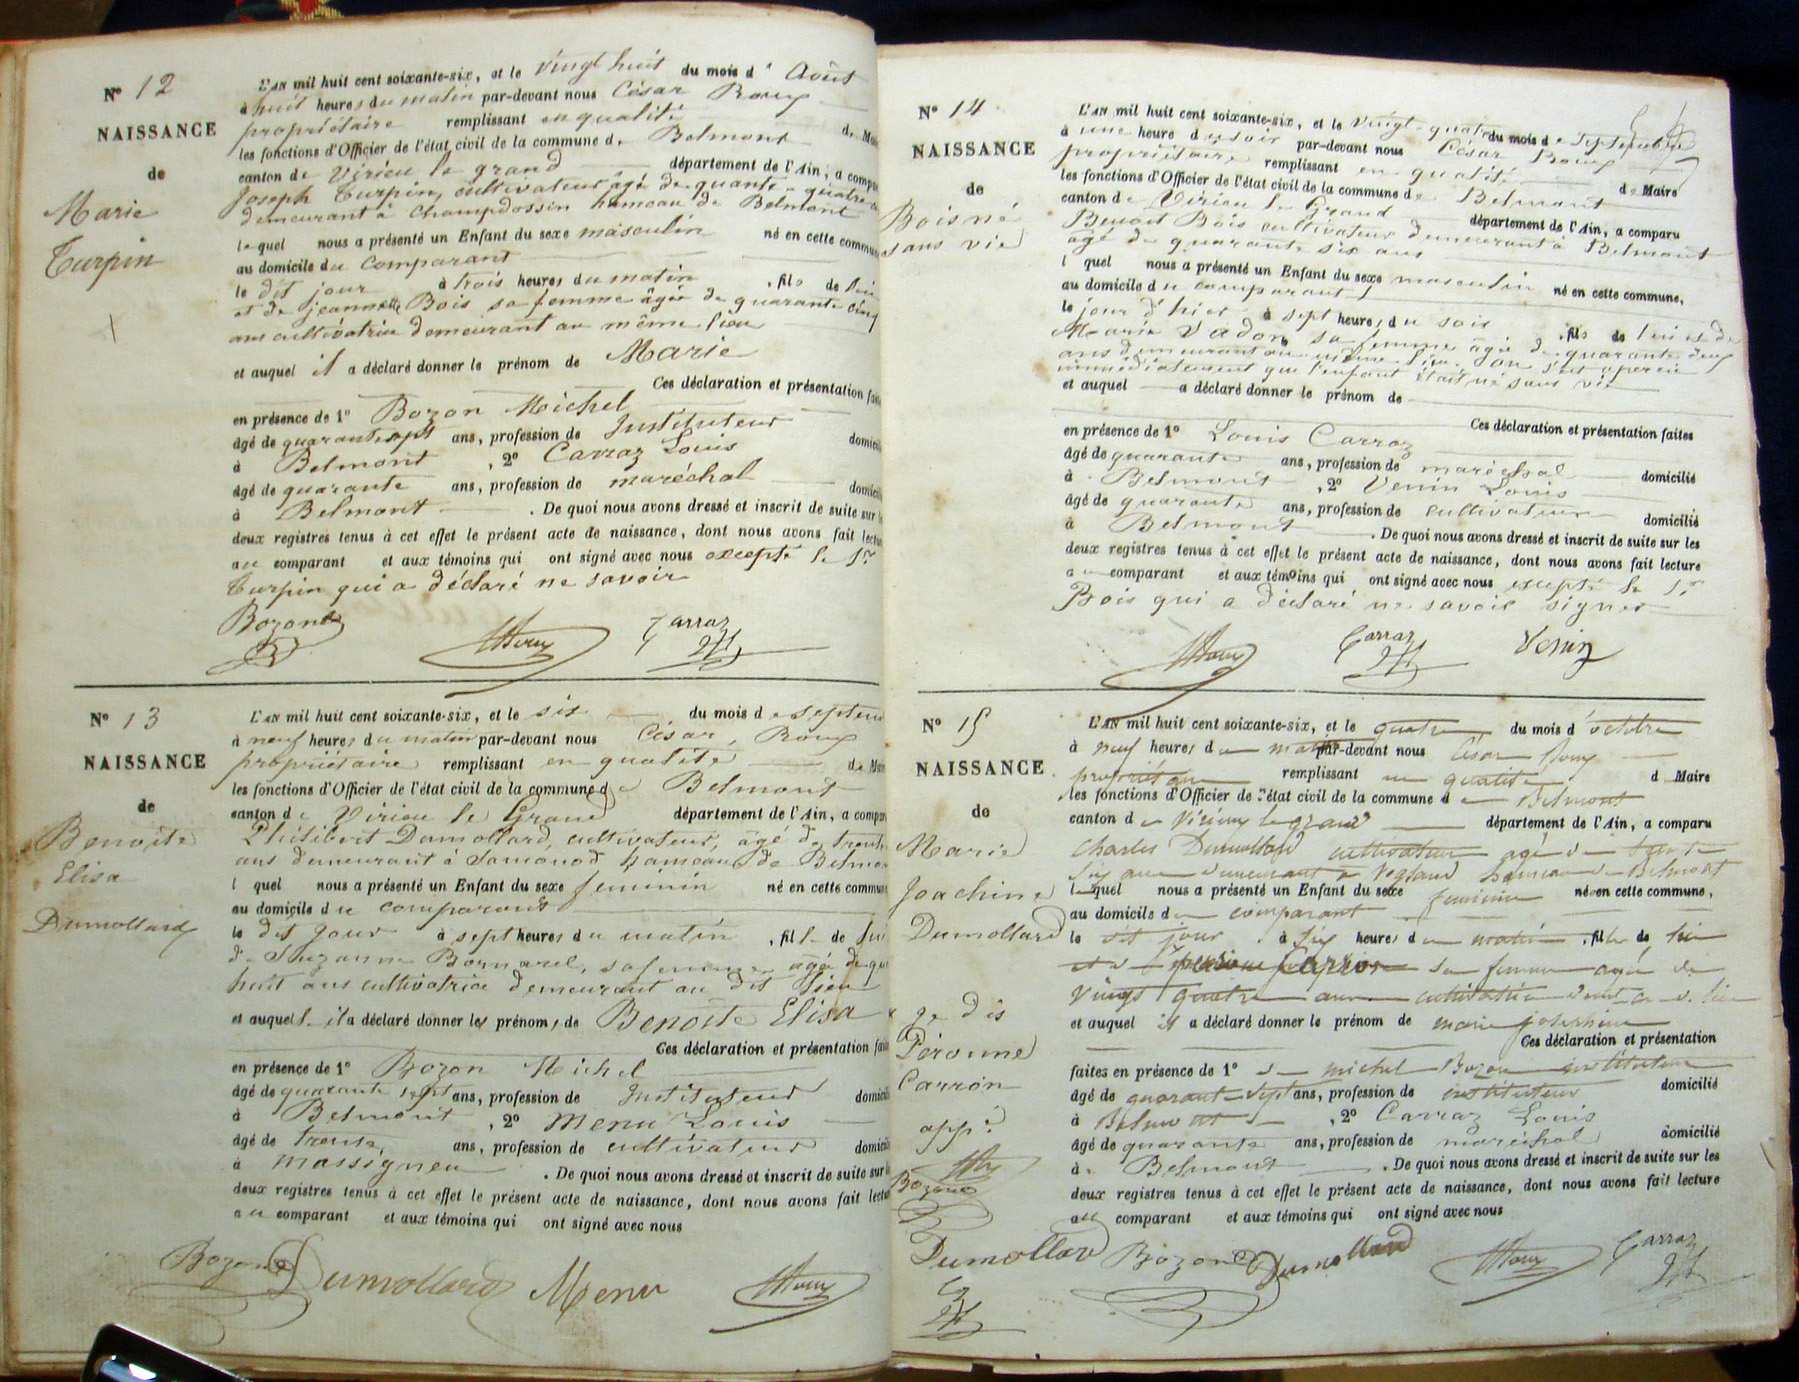 N° 12
NAISSANCE
de
Marie
Turpin
L'AN mil huit cent soixante-six, et le vingt huit du mois d' Août
à huit heures du matin par-devant nous César Roux
propriétaire remplissant en qualité de Mai
les fonctions d'Officier de l'état civil de la commune de Belmont
canton de Virieu le grand département de l'Ain, a compa
Joseph Turpin, cultivateur âgé de quante-quatre
demeurant à Champdossin hameau de Belmont
lequel nous a présenté un Enfant du sexe masculin né en cette commun
au domicile du comparant
le dit jour à trois heures du matin, fils de lui
et de jeannette Bois sa femme âgée de quarante cinq
ans cultivatrice demeurant au même lieu
et auquel il a déclaré donner le prénom de Marie
Ces déclaration et présentation fai
en présence de 1° Bozon Michel
âgé de quarante sept ans, profession de Instituteur domicili
à Belmont, 2° Carraz Louis
âgé de quarante ans, profession de maréchal domicili
à Belmont. De quoi nous avons dressé et inscrit de suite sur l
deux registres tenus à cet effet le présent acte de naissance, dont nous avons fait lectu
au comparant et aux témoins qui ont signé avec nous excepté le Sr
Turpin qui a déclaré ne savoir
Bozon Roux Carraz
N° 13
NAISSANCE
de
Benoite
Elisa
Dumollard
L'AN mil huit cent soixante-six, et le six du mois de septem
à neuf heures du matin par-devant nous César, Roux
propriétaire remplissant en qualité de Mai
les fonctions d'Officier de l'état civil de la commune de Belmont
canton de Virieu le Grand département de l'Ain, a compa
Philibert Dumollard, cultivateur, âgé de trente
ans demeurant à Samonod hameau de Belmon
l quel nous a présenté un Enfant du sexe feminin né en cette commun
au domicile du comparant
le dit jour à sept heures du matin, fille de lui
de Suzanne Bornarel, sa femme âgée de
huit ans cultivatrice demeurant au dit lieu
et auquel il a déclaré donner les prénoms de Benoite Elisa
Ces déclaration et présentation fai
en présence de 1° Bozon Michel
âgé de quarante sept ans, profession de Instituteur domicili
à Belmont, 2° Menu Louis
âgé de trente, ans, profession de cultivateur domicili
à massigneu. De quoi nous avons dressé et inscrit de suite sur l
deux registres tenus à cet effet le présent acte de naissance, dont nous avons fait lectu
au comparant et aux témoins qui ont signé avec nous
Bozon Dumollard Menu Roux
N° 14
NAISSANCE
de
Bois né
sans vie
L'AN mil huit cent soixante-six, et le vingt-quatre du mois de Septembre
à une heure du soir par-devant nous César Roux
propriétaire remplissant en qualité de Maire
les fonctions d'Officier de l'état civil de la commune de Belmont
canton de Virieu le Grand département de l'Ain, a comparu
Benoit Bois cultivateur demeurant à Belmont
âgé de quarante six ans
l quel nous a présenté un Enfant du sexe masculin né en cette commune,
au domicile du comparant
le jour d'hier à sept heures du soir, fils de lui et de
Marie Vadon sa femme âgée de quarante deux
ans demeurant au même lieu on s'est aperçu
immédiatement que l'enfant était né sans vie
et auquel a déclaré donner le prénom de
Ces déclaration et présentation faites
en présence de 1° Louis Carraz
âgé de quarante ans, profession de maréchal domicilié
à Belmont, 2° Venin Louis
âgé de quarante ans, profession de cultivateur domicilié
à Belmont. De quoi nous avons dressé et inscrit de suite sur les
deux registres tenus à cet effet le présent acte de naissance, dont nous avons fait lecture
au comparant et aux témoins qui ont signé avec nous excepté le Sr
Bois qui a déclaré ne savoir signer
Roux Carraz Venin
N° 15
NAISSANCE
de
Marie
Joachine
Dumollard
je dis
Péronne
Carron
app.
Bozon
Dumollard
L'AN mil huit cent soixante-six, et le quatre du mois d'octobre
à neuf heures du matin par-devant nous César Roux
propriétaire remplissant en qualité d Maire
les fonctions d'Officier de l'état civil de la commune de Belmont
canton de Virieux le grand département de l'Ain, a comparu
Charles Dumollard cultivateur agé de trente
six ans demeurant a Vogland hameau de Belmont
lequel nous a présenté un Enfant du sexe feminin né en cette commune,
au domicile du comparant
le dit jour à six heures du matin, fille de lui
et de Carron sa femme agée de
vingt quatre ans cultivatrice
et auquel il a déclaré donner le prénom de marie josephine
Ces déclaration et présentation
faites en présence de 1° de michel Bozon instituteur
âgé de quarante-sept ans, profession de instituteur domicilié
à Belmont, 2° Carraz Louis
âgé de quarante ans, profession de maréchal domicilié
à Belmont. De quoi nous avons dressé et inscrit de suite sur les
deux registres tenus à cet effet le présent acte de naissance, dont nous avons fait lecture
au comparant et aux témoins qui ont signé avec nous
Bozon Dumollard Roux Carraz